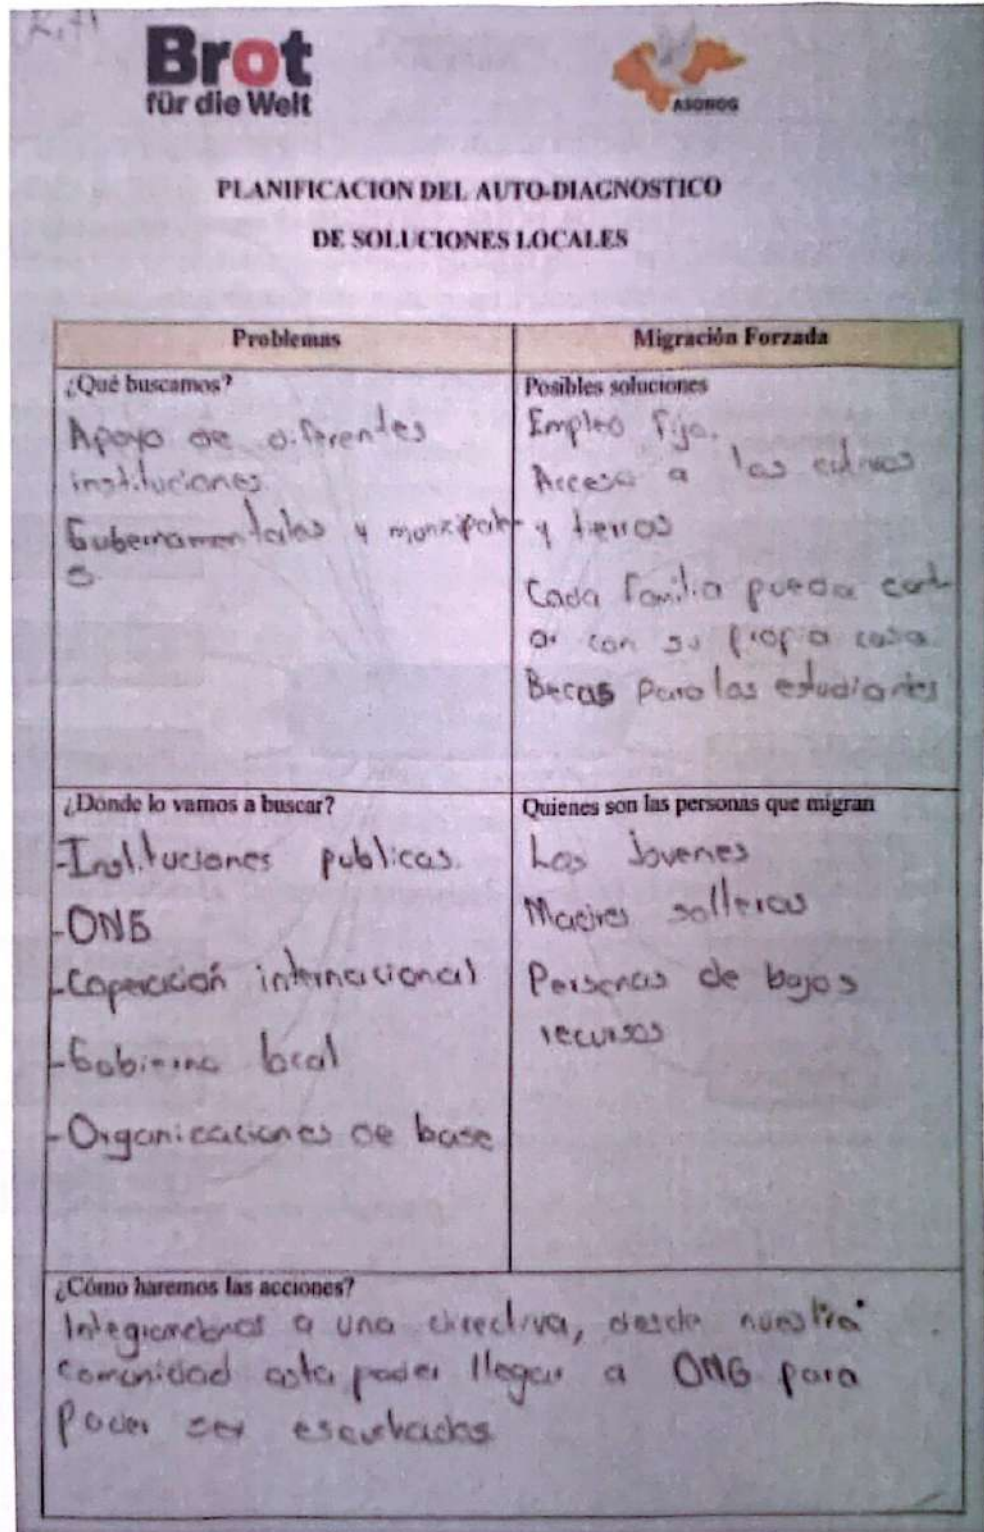 Brot
für die Welt
ASONOG
PLANIFICACION DEL AUTO-DIAGNOSTICO
DE SOLUCIONES LOCALES
Problemas
Migración Forzada
¿Qué buscamos?
Apoyo de diferentes
instituciones.
Gubernamentales y
s.
Posibles soluciones
Empleo fijo.
Acceso a las
y tierras
Cada familia pueda cont
ar con su propia casa
Becas para los estudiantes
¿Donde lo vamos a buscar?
-Instituciones publicas.
-ONG
-Coperación internacional
-Gobierno local
-Organizaciones de base
Quienes son las personas que migran
Los Jovenes
Madres solteras
Personas de bajos
recursos
¿Cómo haremos las acciones?
a una directiva, desde nuestra
comunidad asta poder llegar a ONG para
Poder ser escuchados